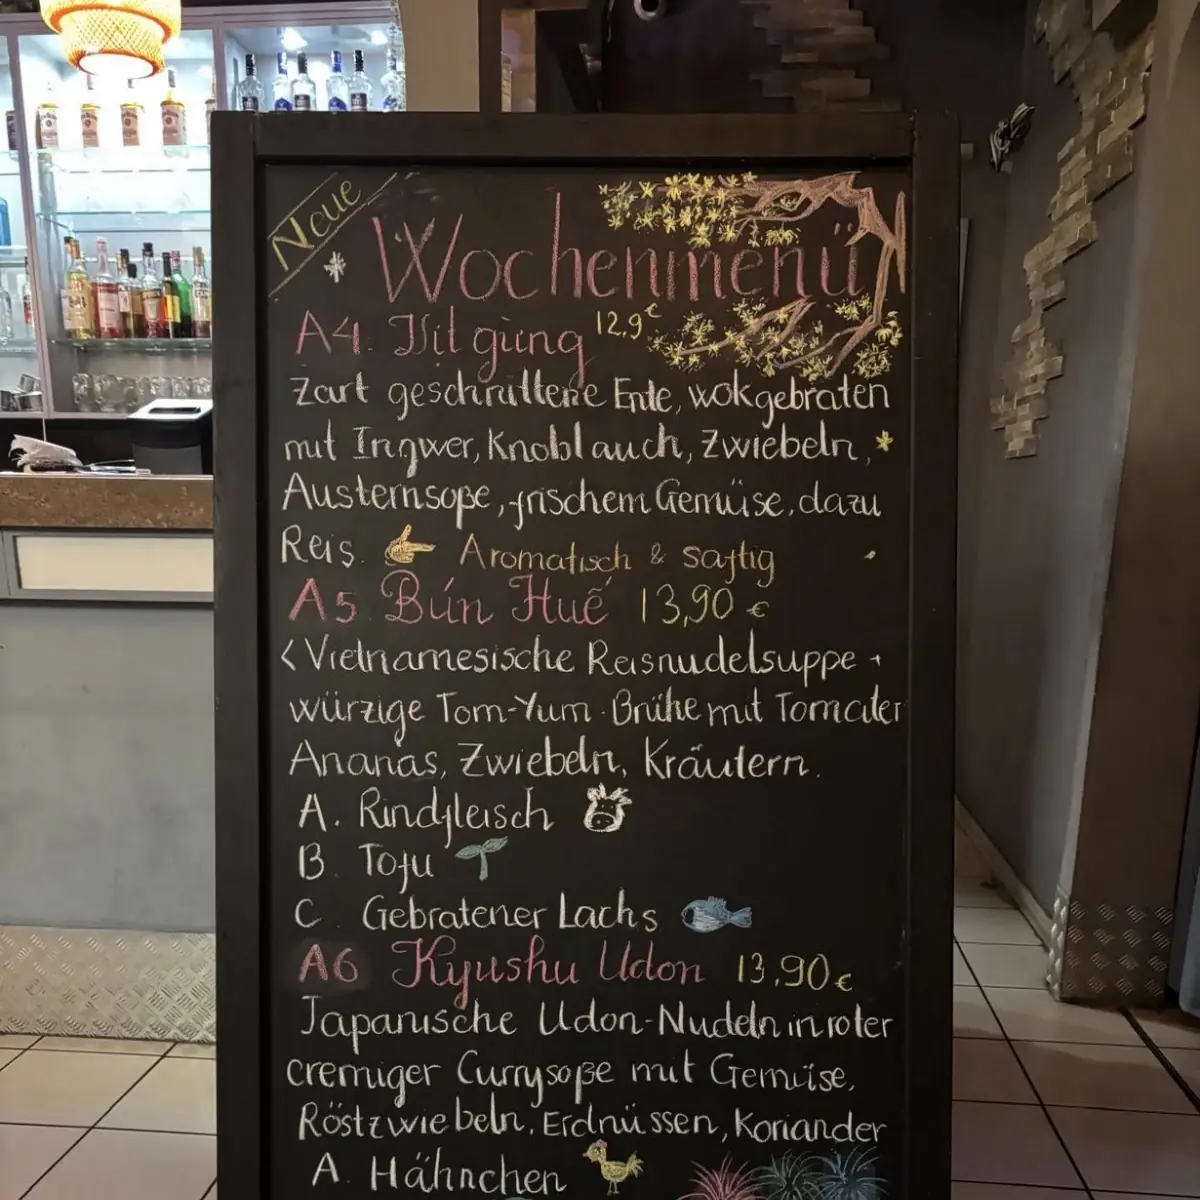 Neue
Wochenmenü
A4. Vịt gừng 12,9€
Zart geschnittene Ente, wokgebraten
mit Ingwer, Knoblauch, Zwiebeln,
Austernsoße, frischem Gemüse, dazu
Reis. Aromatisch & saftig
A5. Bún Huế 13,90 €
Vietnamesische Reisnudelsuppe
würzige Tom-Yum-Brühe mit Tomaten
Ananas, Zwiebeln, Kräutern.
A. Rindfleisch
B. Tofu
C. Gebratener Lachs
A6 Kyushu Udon 13,90€
Japanische Udon-Nudeln in roter
cremiger Currysoße mit Gemüse,
Röstzwiebeln, Erdnüssen, Koriander
A. Hähnchen